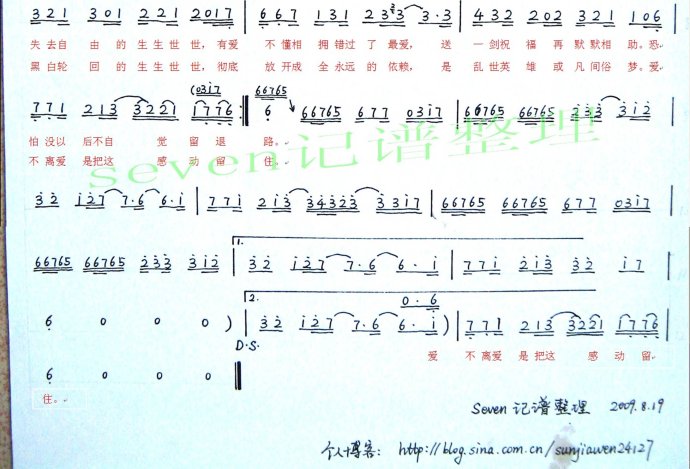 321 301 221 2017 | 667 131 2333 3·3 | 432 202 321 106
失去自 由的 生生 世世，有爱 不懂相 拥错过 了 最爱， 送 一剑祝 福 再 默默相 助。恐
黑白轮 回的 生生 世世，彻底 放开成 全永远 的 依赖， 是 乱世英 雄 或 凡间俗 梦。爱
(0317 66765
771 213 3221 1776 :‖ 6 66765 677 0317 | 66765 66765 233 312 |
怕没以 后不自 觉 留 退 路。
不离爱 是把这 感 动 留 住。
seven记谱整理
32 127 7·6 6·1 | 771 213 34323 3317 | 66765 66765 677 0317 |
66765 66765 233 312 | 1. 32 127 7·6 6·1 | 771 213 32 17 |
0·6
6 0 0 0 ) | 2. 32 127 7·6 6·1 ) | 771 213 3221 1776 |
D.S. 爱 不离爱 是把这 感 动留
6 0 0 0 ‖
住。
Seven 记谱整理 2009.8.19
个人博客： http://blog.sina.com.cn/sunjiawen24127